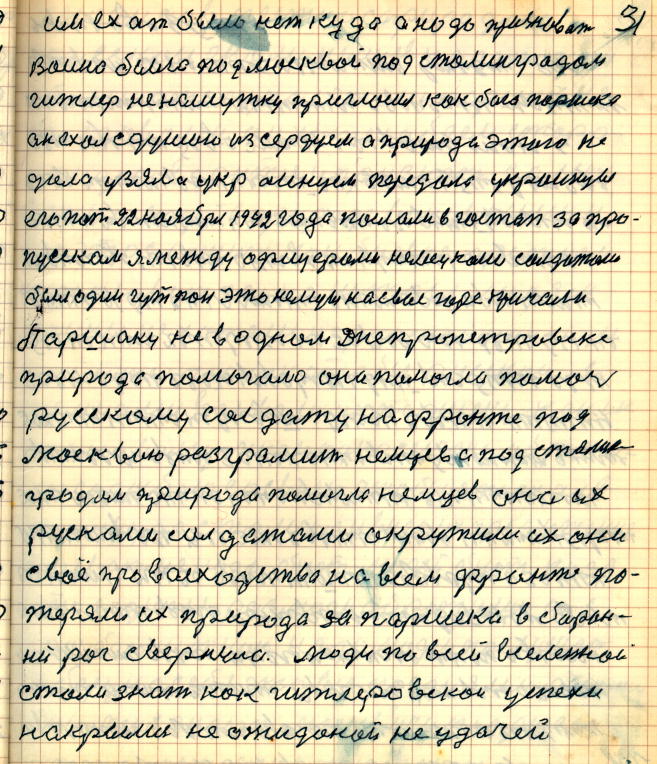 им ехат было неткуда а надо признават 31
война была под москвой под сталинградом
гитлер не на шутку пригласил как бога паршека
он ехал с душою из сердцем а природа этого не
дала узяла украинцем передала украинцы
его  22 ноября 1942 года послали в гостап за про-
пускам я между офицерами немецкими солдатами
был один  это немцы на свое горе кричали
Паршаку не в одном Днепропетровске
природа помогало она помогла помоч
русскому солдату на фронте под
москвою разграмит немцев а под сталин-
градом природа помогла немцев она их
русками солдатами окружили их они
своё провасходства на всем фронте по-
теряли их природа за паршека в баран-
ий рог свернула. люди по всей вселенной
стали знат как гитлеровской успехи
накрылис не ожиданой не удачей